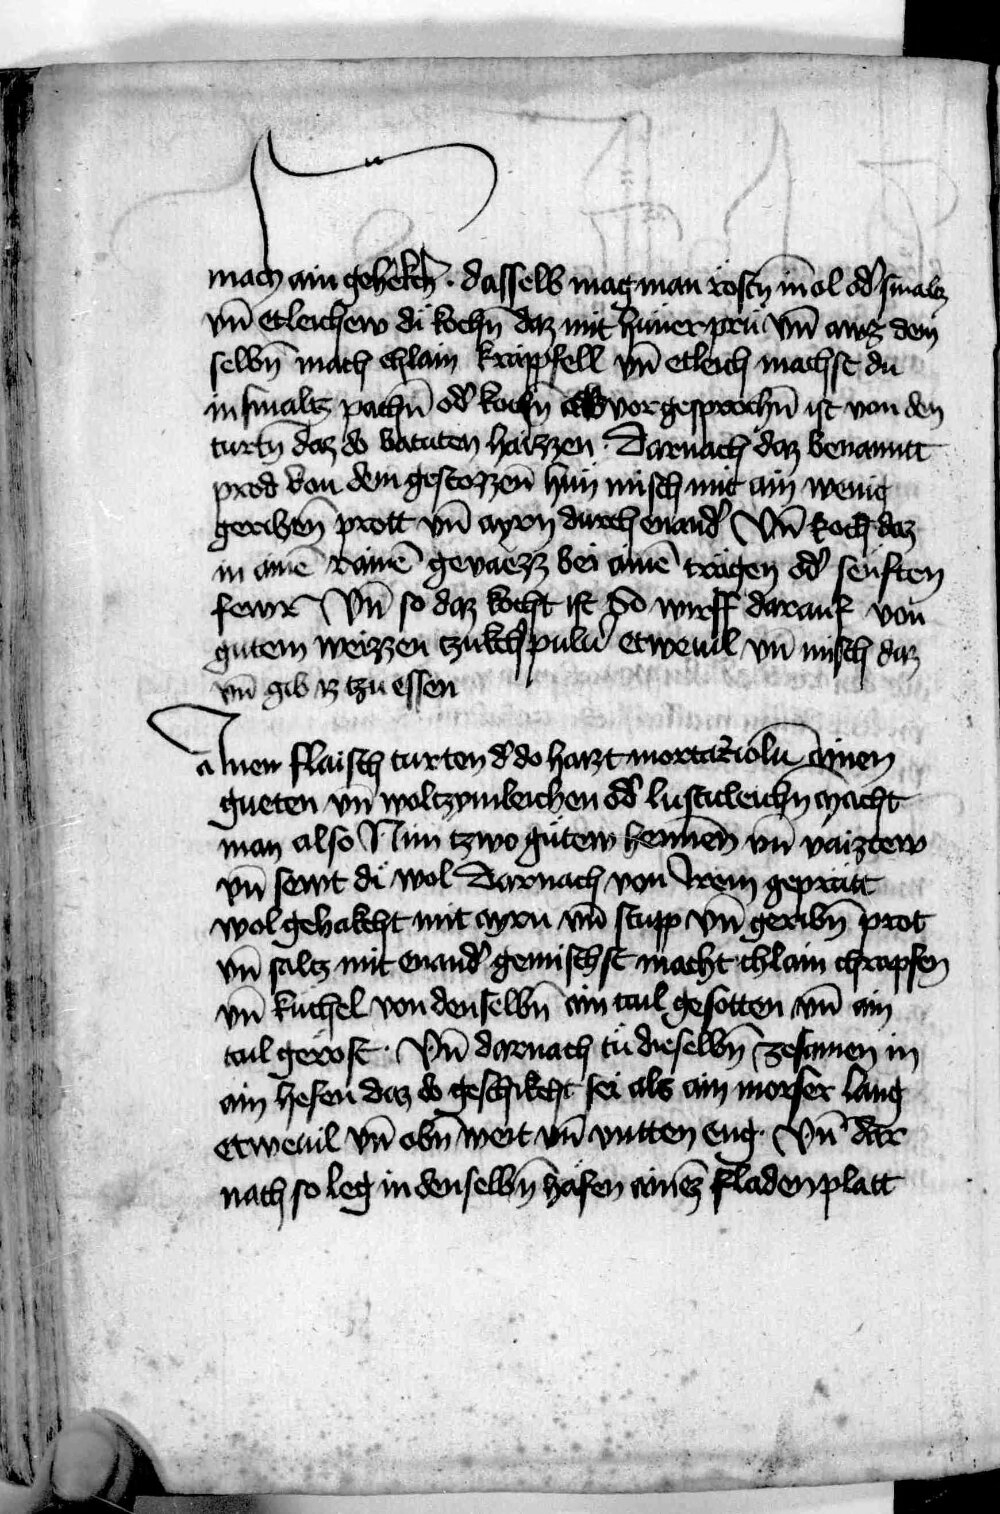 mach ain gehekch . dasselb mag man rosten in ol od smaltz
vnd etleichew di kochn̄ daz mit hüner prü vn̄ awz dem
selbn̄ mach chlain krappfell vn̄ etleich machst du
in smaltz pachn̄ od kochn̄ als vor gesprochn̄ ist von den
turtn̄ daz do batuten haizzen . Darnach daz benannt
prod von dem gestozzen̄ hün misch mit ain wenig
geribn̄ prott vn̄ ayrn durch enand Vn̄ koch daz
in ainē rainē gevaezz bei ainē trägen od senften
fewr Vn̄ so daz kocht ist So wirff darauf von
gutem weizzen tzukch puluer etwevil vn̄ misch daz
vn̄ gib iz tzu essen
Ainen flaisch turten d do haizt mortariolū ainen
gueten vn̄ woltzymleichen od lusticleichn macht
man also Nim tzwo gütew hennen̄ vn̄ vaiztew
vn̄ sewt di wol Darnach von irem geprätt
wol gehakcht mit ayrn vn̄ stupp vn̄ geribn̄ prot
vn̄ saltz mit enand gemischst macht chlain chrapfen
vn̄ kuchel von denselbn̄ ain tail gesotten vn̄ ain
tail geröst . Vn̄ darnach tü dieselbn̄ zesamen in
ain hefen daz do geschikcht sei als ain morser lang
etwevil vn̄ obn̄ weit vn̄ vntten eng . Vn̄ dar
nach so leg in denselbn̄ häfen ainez fladen platt